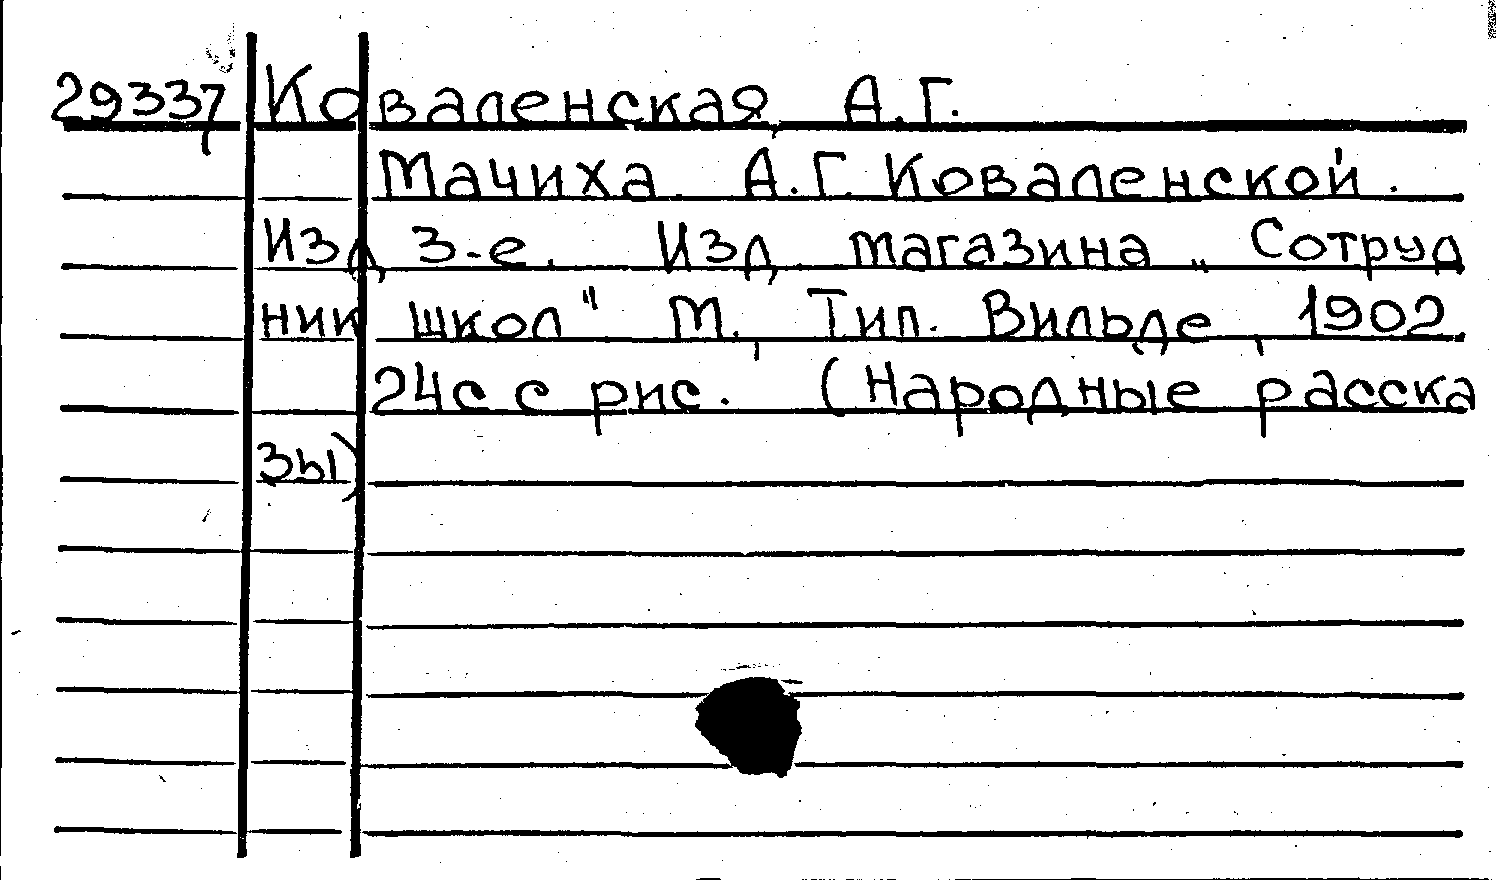 29337 Коваленская, А.Г.
Мачиха. А.Г. Коваленской.
Изд. 3-е. Изд. магазина „Сотруд
ник школ" М., Тип. Вильде, 1902.
24с с рис. (Народные расска
зы)